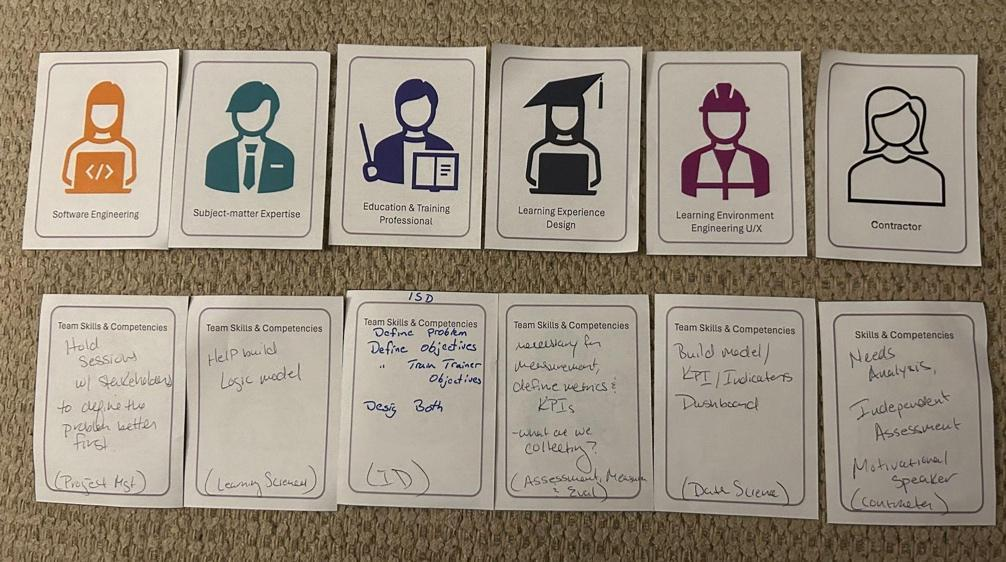 Software Engineering
Subject-matter Expertise
Education & Training
Professional
Learning Experience
Design
Learning Environment
Engineering U/X
Contractor
</>
Team Skills & Competencies
Hold
Sessions
w/ stakeholders
to define the
problem better
first!
(Project Mgt)
Team Skills & Competencies
Help build
Logic model
(Learning Science)
ISD
Team Skills & Competencies
Define Problem
Define Objectives
" Train Trainer
Objectives
Design Both
(ID)
Team Skills & Competencies
necessary for
measurement,
define metrics &
KPIs
-what are we
collecting?
(Assessment, Measure
& Eval)
Team Skills & Competencies
Build model/
KPI/Indicators
Dashboard
(Data Science)
Skills & Competencies
Needs
Analysis,
Independent
Assessment
Motivational
speaker
(Contractor)